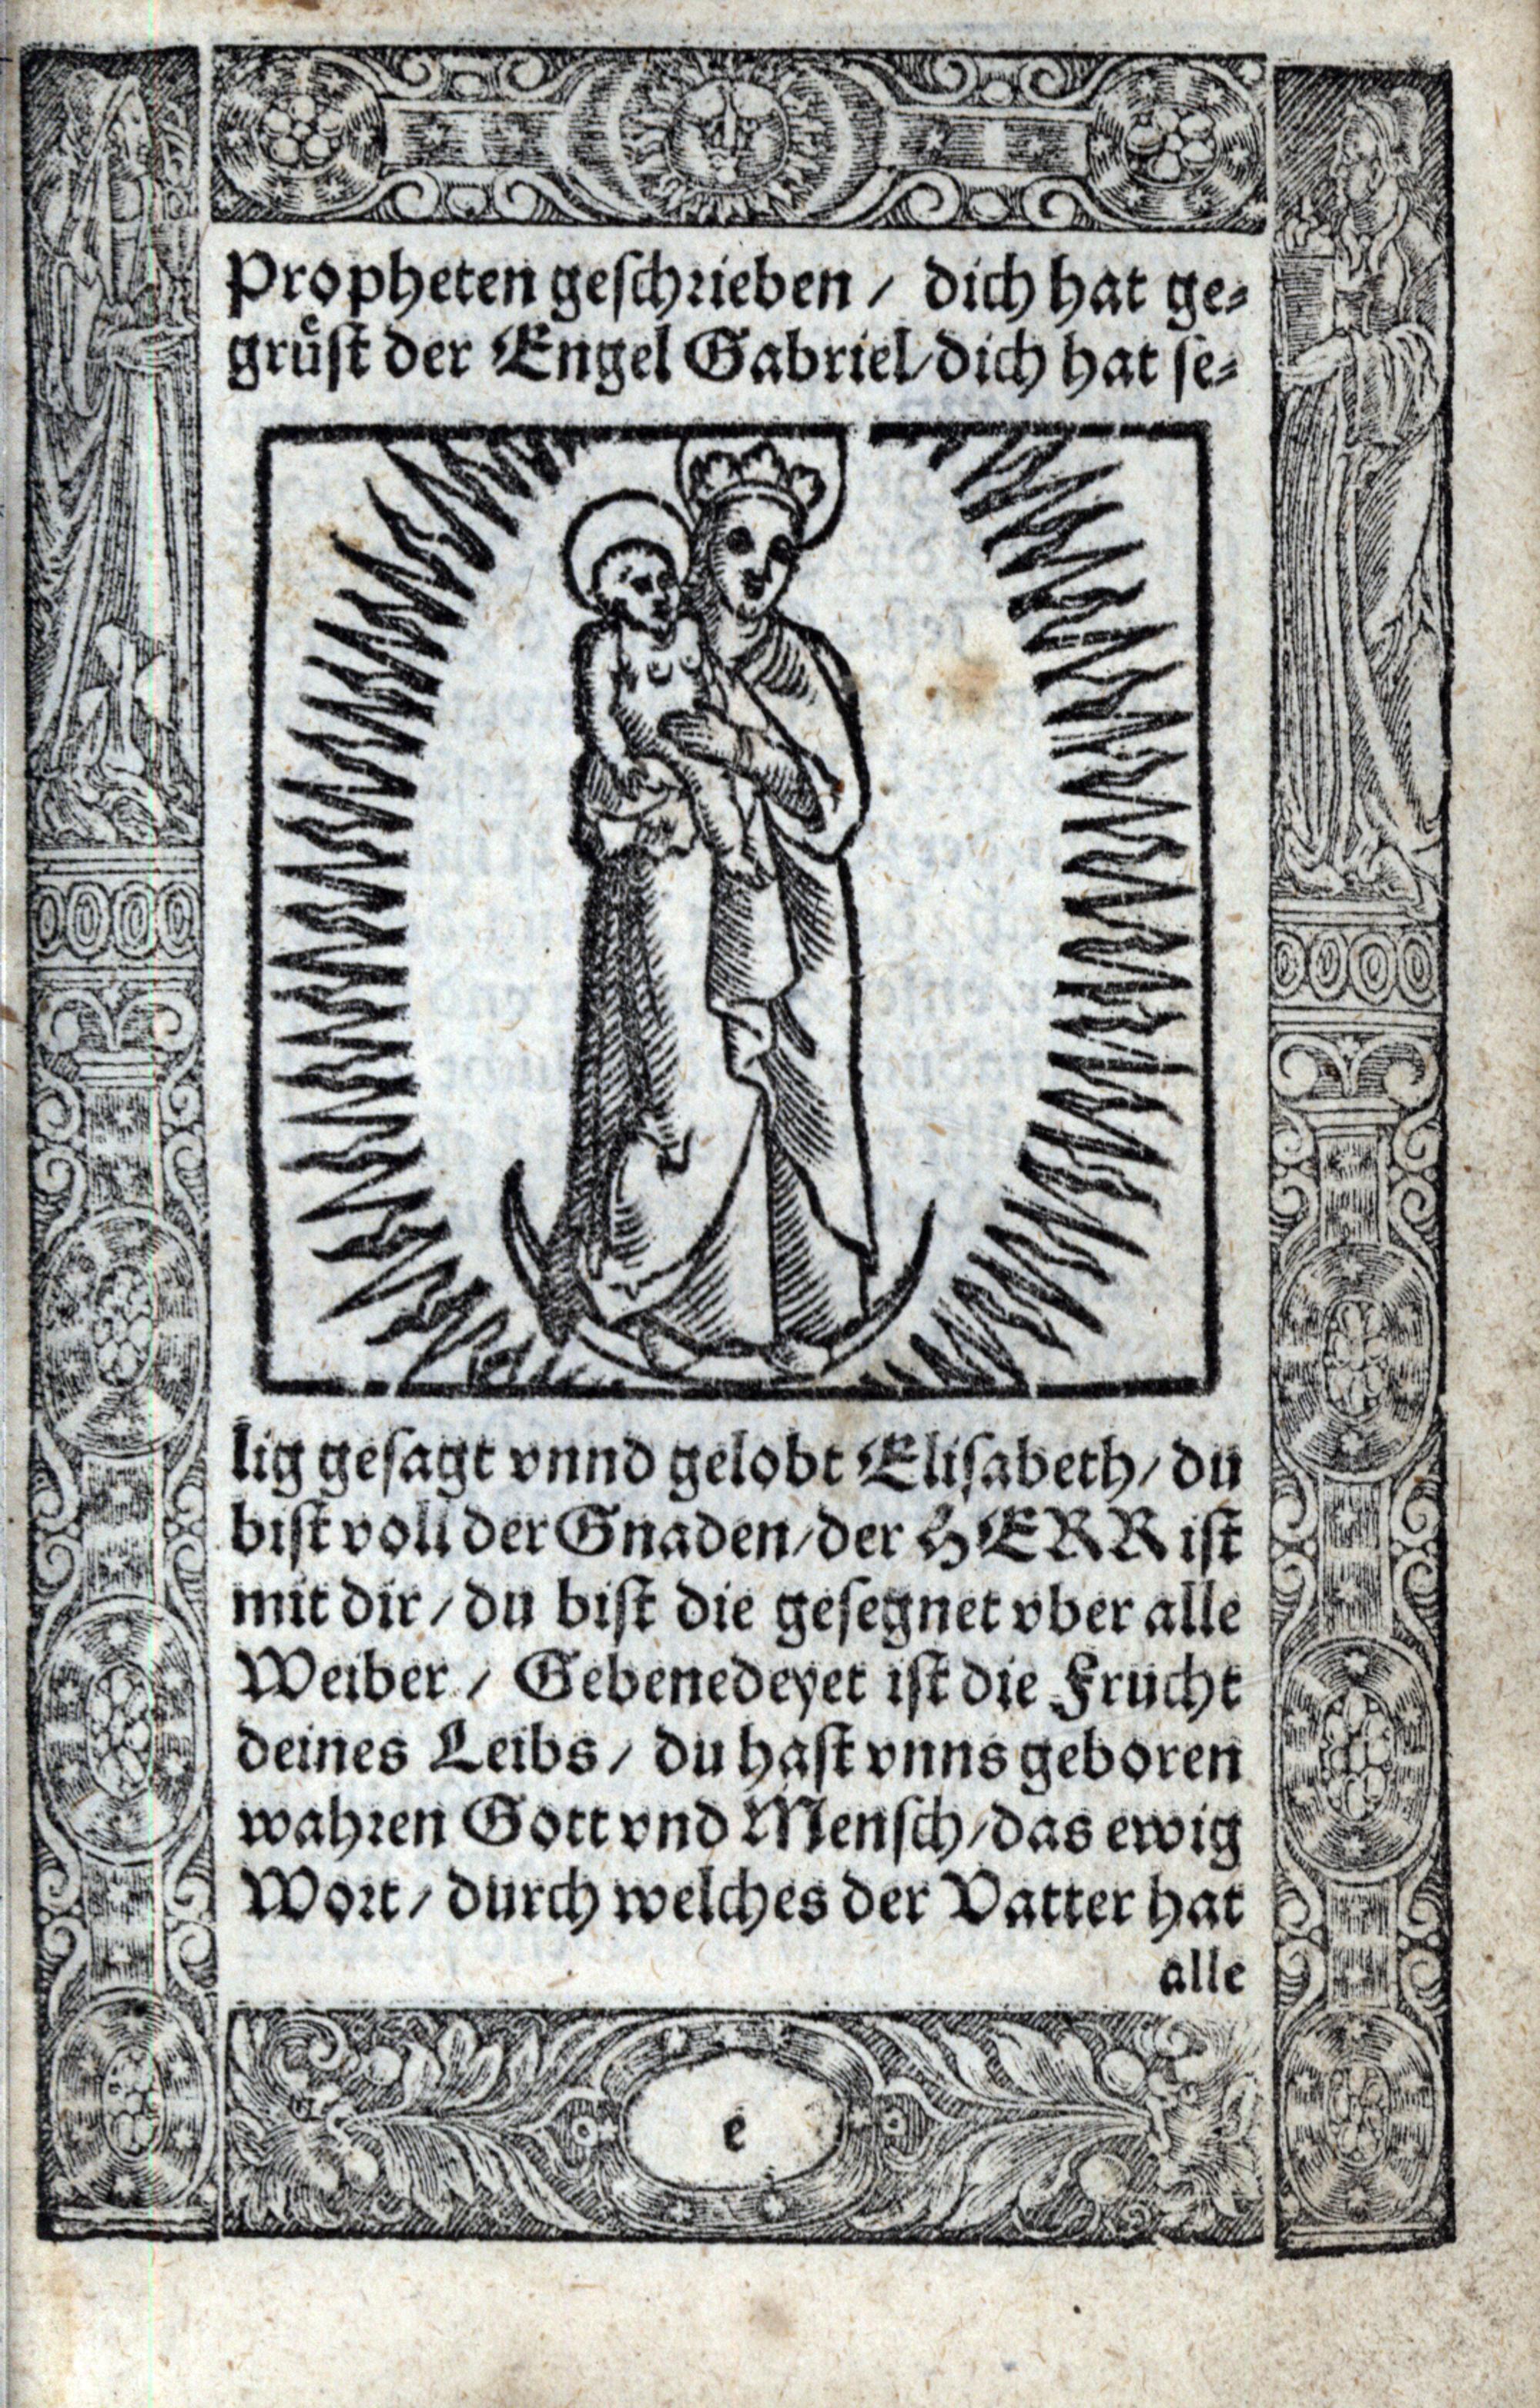 Propheten geschrieben / dich hat ge⸗
gruͤst der Engel Gabriel / dich hat se⸗
lig gesagt vnnd gelobt Elisabeth / du
bist voll der Gnaden / der HERR ist
mit dir / du bist die gesegnet vber alle
Weiber / Gebenedeyet ist die Frucht
deines Leibs / du hast vnns geboren
wahren Gott vnd Mensch / das ewig
Wort / durch welches der Vatter hat
alle
e